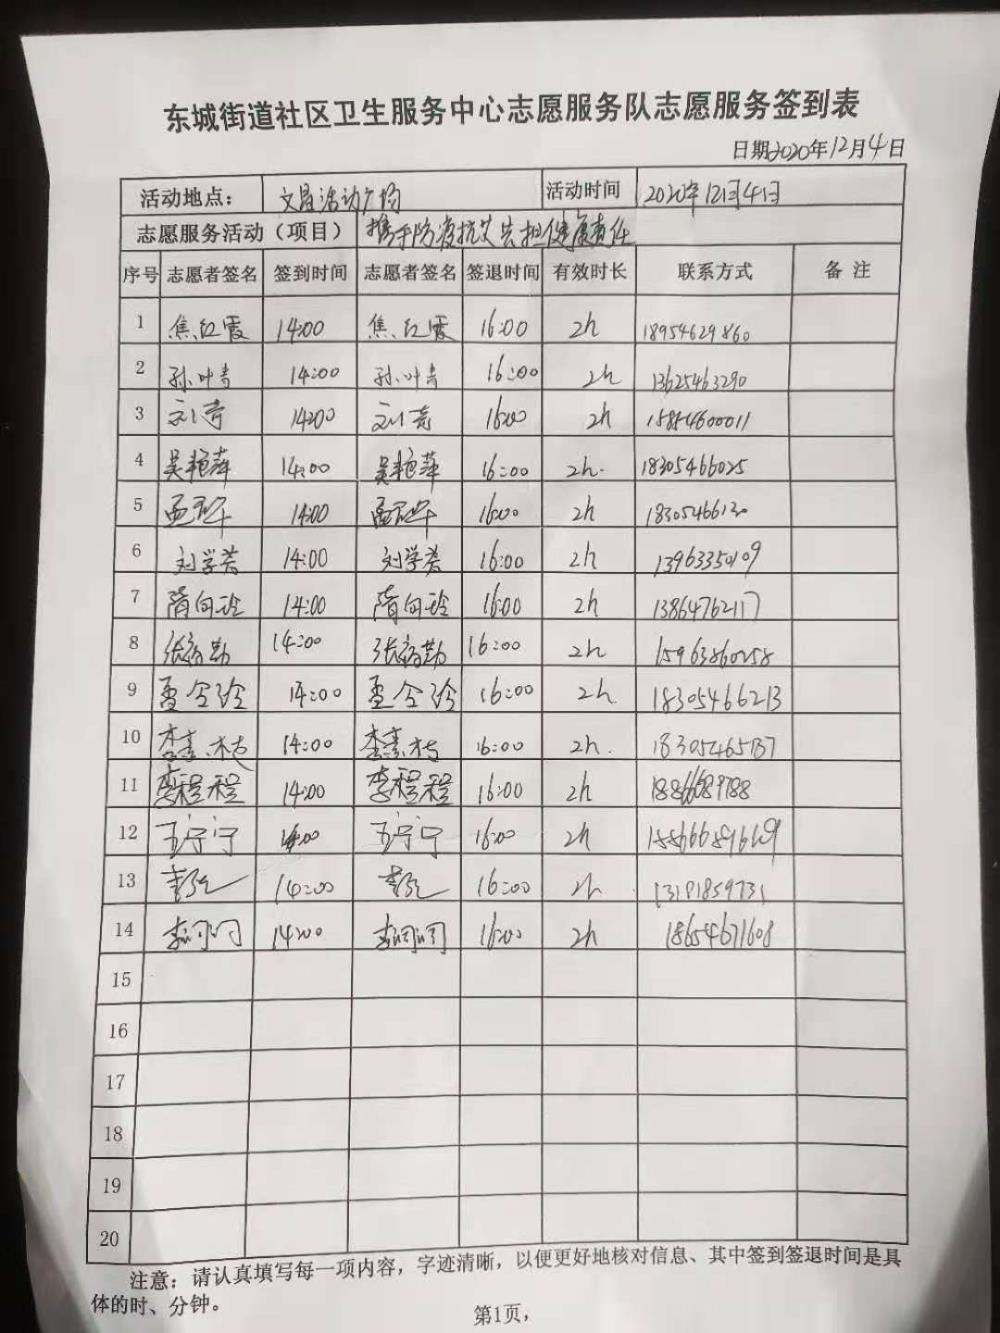 东城街道社区卫生服务中心志愿服务队志愿服务签到表
日期2020年12月4日
活动地点： 文昌活动广场 活动时间 2020年12月4日
志愿服务活动（项目） 携手防疫抗艾共担健康责任
序号 志愿者签名 签到时间 志愿者签名 签退时间 有效时长 联系方式 备 注
1 焦红霞 14:00 焦红霞 16:00 2h 18954629860
2 孙叶青 14:00 孙叶青 16:00 2h 13625463290
3 14:00 16:00 2h 15854600011
4 吴艳萍 14:00 吴艳萍 16:00 2h. 18305466025
5 14:00 16:00 2h 18305466130
6 刘学芳 14:00 刘学芳 16:00 2h 13963350109
7 隋向玲 14:00 隋向玲 16:00 2h 13864762117
8 14:00 16:00 2h 15963860258
9 孟令玲 14:00 孟令玲 16:00 2h 18305466213
10 14:00 16:00 2h. 18305465137
11 李程程 14:00 李程程 16:00 2h
12 王宁宁 14:00 王宁宁 16:00 2h
13 14:00 16:00 2h 13181859731
14 14:00 16:00 2h 18654671608
15
16
17
18
19
20
注意：请认真填写每一项内容，字迹清晰，以便更好地核对信息、其中签到签退时间是具
体的时、分钟。
第1页，